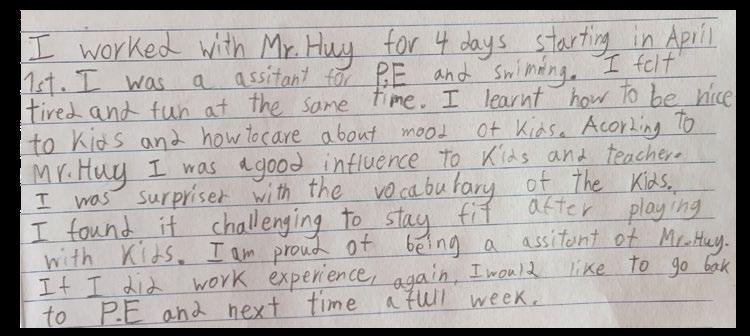 I worked with Mr. Huy for 4 days starting in April
1st. I was a assitant for P.E and swimming. I felt
tired and fun at the same time. I learnt how to be nice
to kids and how to care about mood of kids. Acording to
Mr. Huy I was a good influence to kids and teacher.
I was surpriser with the vocabulary of the kids.
I found it challenging to stay fit after playing
with kids. I am proud of being a assitant of Mr. Huy.
If I did work experience, again, I would like to go bak
to P.E and next time a full week.